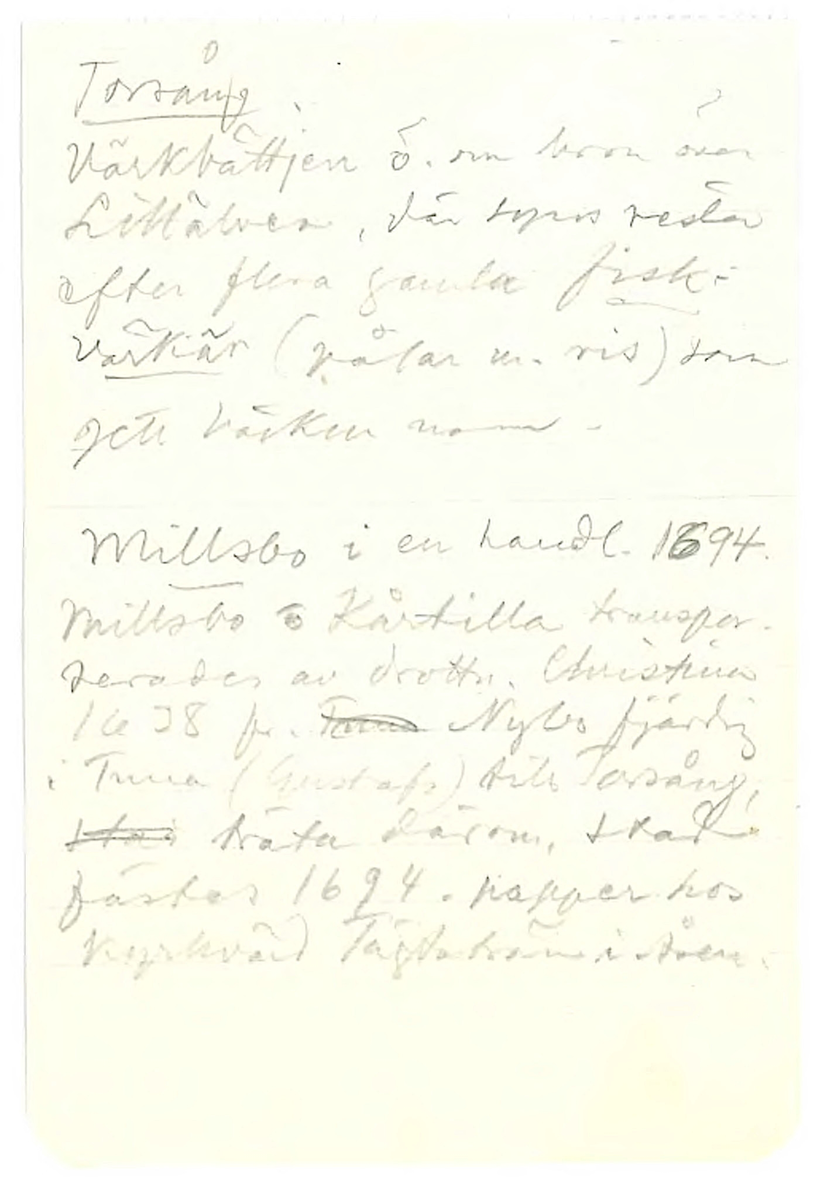 Torsång
Värkbättjen ö. om bron över
Lillälven, där synes rester
efter flera gamla fisk-
värkiär (pålar m. ris) som
gett bäcken namn -
Millsbo i en handl. 1694.
Millsbo o Kårtilla transpor-
terades av drottn. Christina
1638 fr. Tuna Nybo fjärding
i Tuna (Gustafs) till Torsång,
träta därom, stad-
fästes 1694. papper hos
kyrkvärd i Åsen.